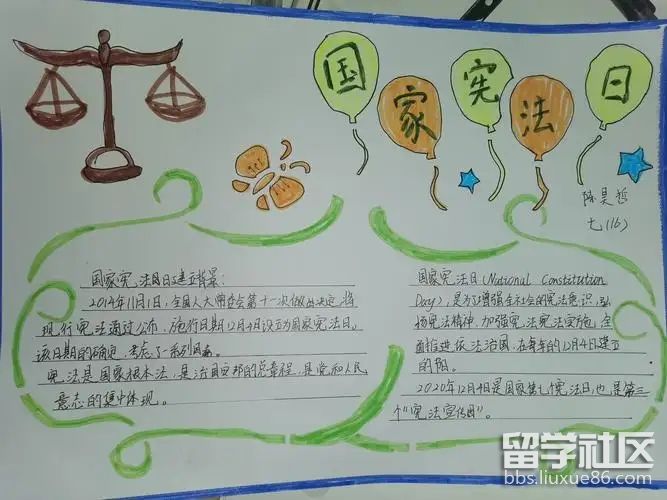 国家宪法日
陈昊哲
七(16)
国家宪法日建立背景:
2014年11月1日,全国人大常委会第十一次做出决定,将
现行宪法通过公布,施行日期12月4日设立为国家宪法日。
该日期的确定,考虑了一系列因素。
宪法是国家根本法,是治国安邦的总章程,是党和人民
意志的集中体现。
国家宪法日(National Constitution
Day),是为了增强全社会的宪法意识,弘
扬宪法精神,加强宪法实施,全
面推进依法治国,在每年的12月4日建立
的阳。
2020年12月4日是国家第七个宪法日,也是第三
个“宪法宣传周”。
留学社区
bbs.liuxue86.com